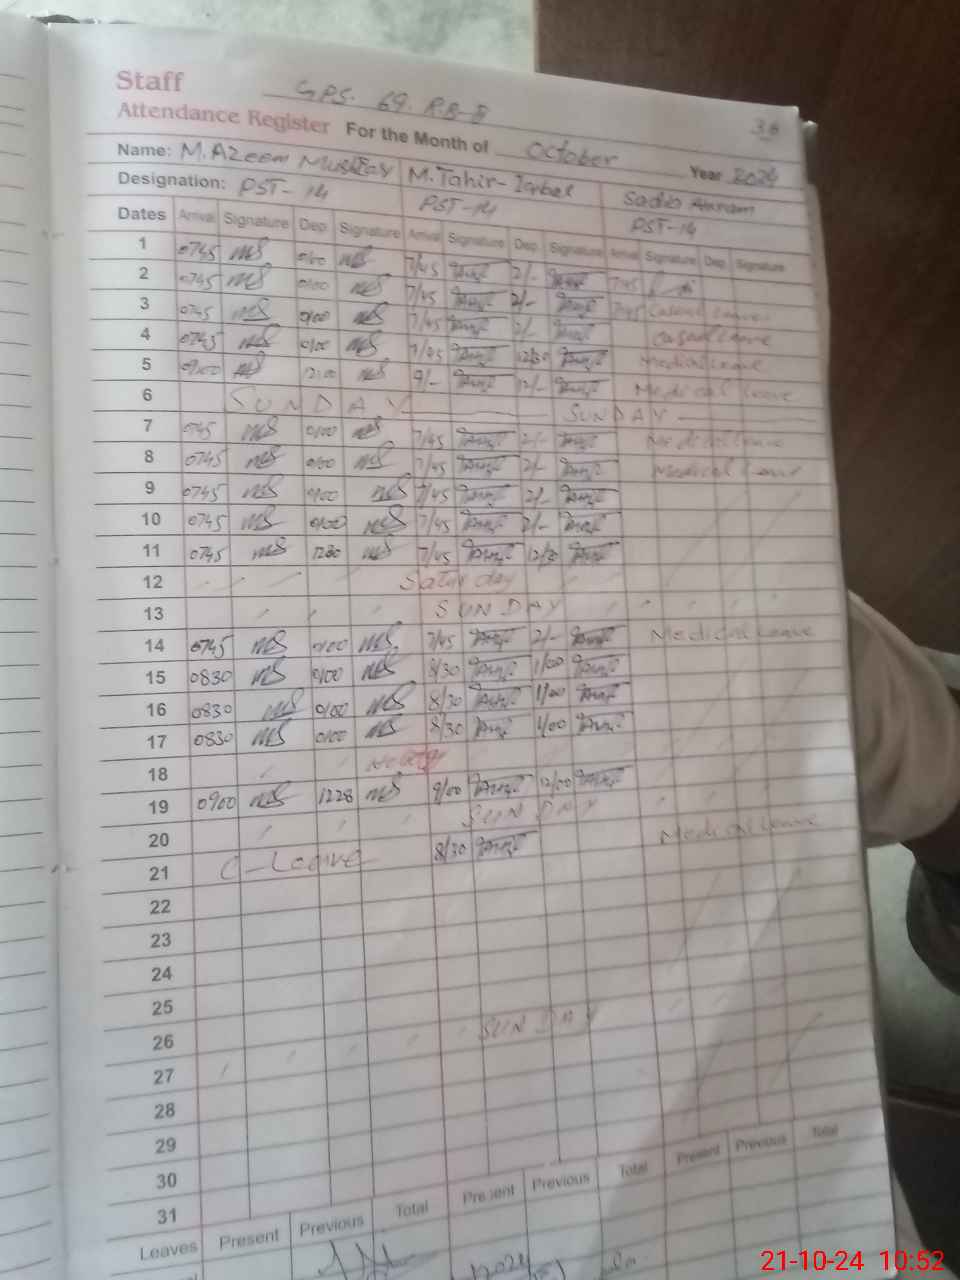 Staff
G.P.S. 69. R.B-I
36
Attendance Register For the Month of October Year 2024
Name: M.Azeem Mushtaq M.Tahir-Iqbal Sadia Akram
Designation: PST-14 PST-14 PST-14
Dates Arrival Signature Dep Signature Arrival Signature Dep Signature Arrival Signature Dep Signature
1 0745 0100 7/45 2/- 7/45
2 0745 0100 7/45 2/- 7/45 Casual Leave
3 0745 0100 7/45 2/- Casual Leave
4 0745 0100 7/45 12/30 Medical Leave
5 0900 1200 9/- 12/- Medical Leave
6 SUNDAY SUNDAY
7 0745 0100 7/45 2/- Medical Leave
8 0745 0100 7/45 2/- Medical Leave
9 0745 0100 7/45 2/-
10 0745 0100 7/45 2/-
11 0745 1230 7/45 12/30
12 Saturday
13 SUNDAY
14 0745 0100 7/45 2/- Medical Leave
15 0830 0100 8/30 1/00
16 0830 0100 8/30 1/00
17 0830 0100 8/30 1/00
18
19 0900 1228 9/00 12/00
20 SUNDAY
21 C-Leave 8/30 Medical Leave
22
23
24
25
26 SUNDAY
27
28
29
30
31
Leaves Present Previous Total Present Previous Total Present Previous Total
21-10-24 10:52